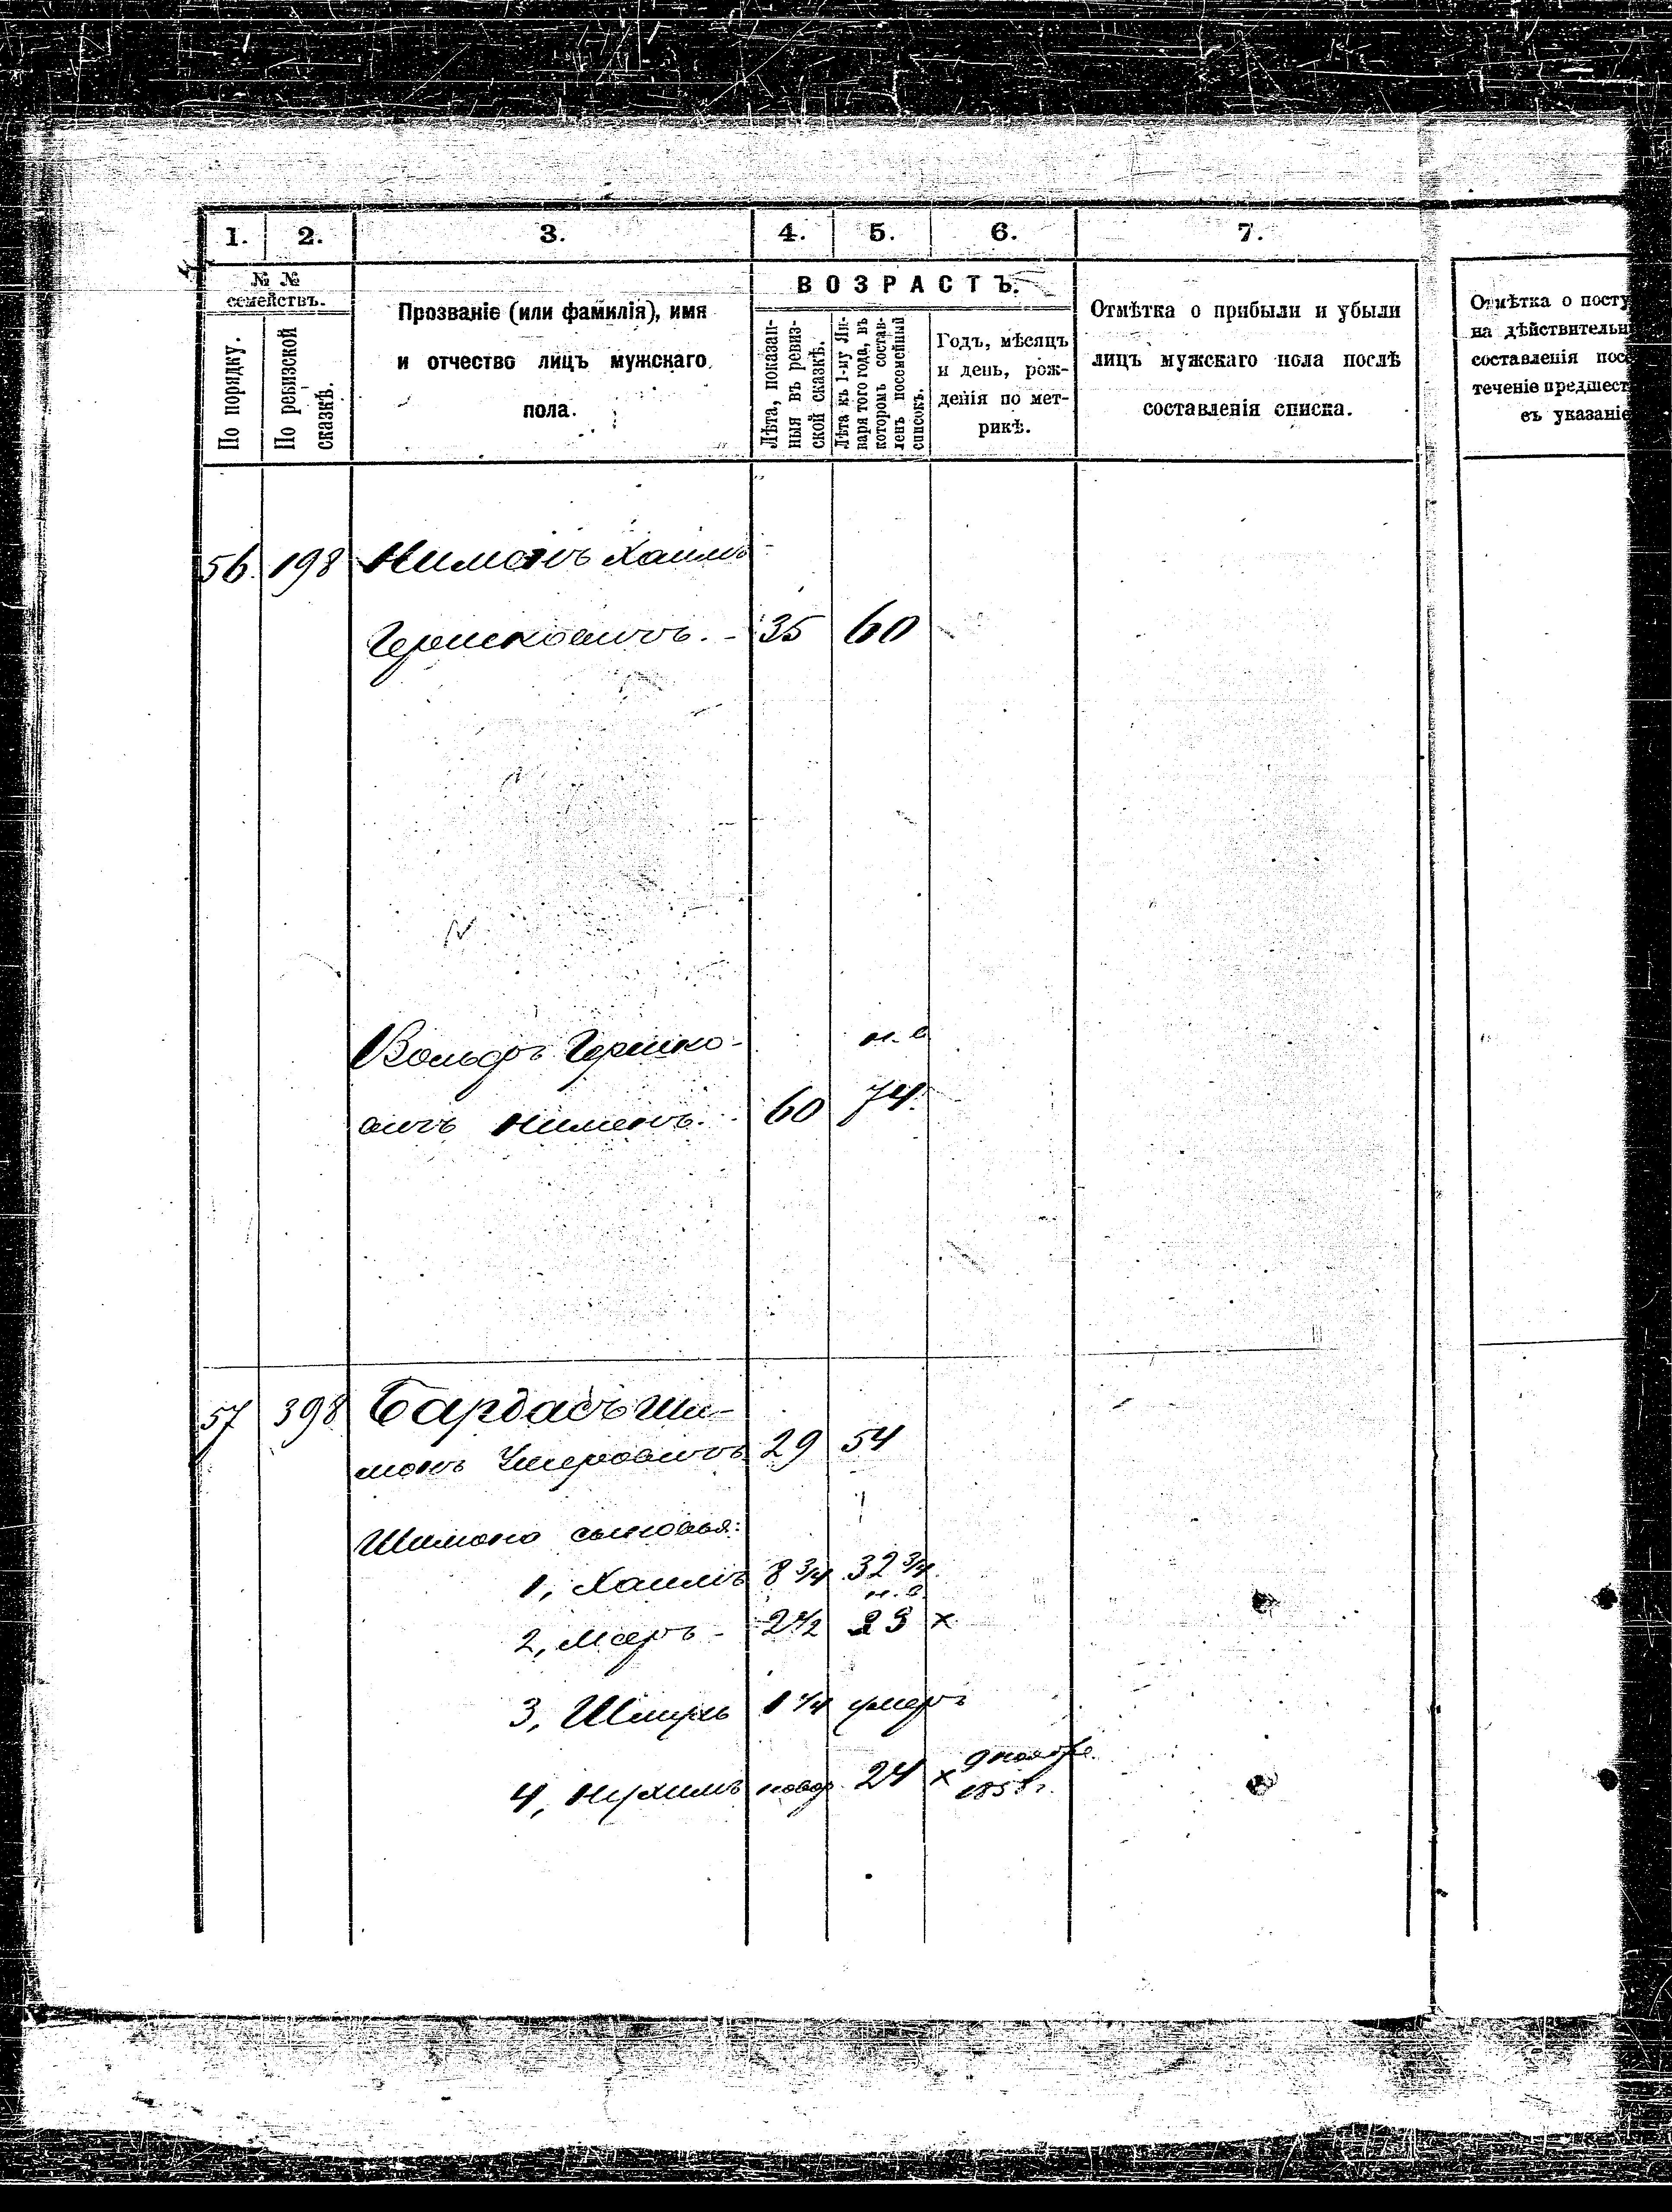 1. 2. 3. 4. 5. 6. 7.
№ №
семействъ.
По порядку.
По ревизской
сказкѣ.
Прозваніе (или фамилія), имя
и отчество лицъ мужскаго
пола.
ВОЗРАСТЪ.
Лѣта, показан-
ныя въ ревиз-
ской сказкѣ.
Лѣта къ 1-му Ян-
варя того года, въ
которомъ состав-
ленъ посемейный
списокъ.
Годъ, мѣсяцъ
и день, рож-
денія по мет-
рикѣ.
Отмѣтка о прибыли и убыли
лицъ мужскаго пола послѣ
составленія списка.
Отмѣтка о посту
на дѣйствительн
составленія посе
теченіе предшест
съ указаніе
56. 198 Ниманъ Хаимъ
Гершковичъ. - 35 60
Вольфъ Гершко- н. в.
вичъ Ниманъ. 60 74.
57 398 Бардасъ Ши-
монъ 29 54
Шимона сыновья:
1, Хаимъ 8 3/4 32 3/4
н. в.
2, Меръ - 2 1/2 23 х
3, Шмуль 1 1/4 умеръ
4, Нухимъ новор. 24 х 9 ноября
1858 г.